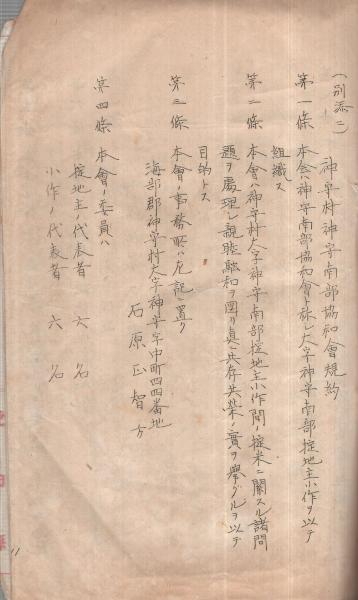 (別添二)
神守村神守南部協和會規約
第一條 本会ハ神守南部協和會ト称シ大字神守南部掟地主小作ヲ以テ
組織ス
第二條 本會ハ神守村大字神守南部掟地主小作間ノ掟米ニ關スル諸問
題ヲ處理シ親睦融和ヲ図リ真ニ共存共栄ノ實ヲ擧グルヲ以テ
目的トス
第三條 本會ノ事務所ハ左記ニ置ク
海部郡神守村大字神守字中町四四番地
石原正智方
第四條 本會ノ委員ハ
掟地主ノ代表者 六名
小作ノ代表者 六名
11